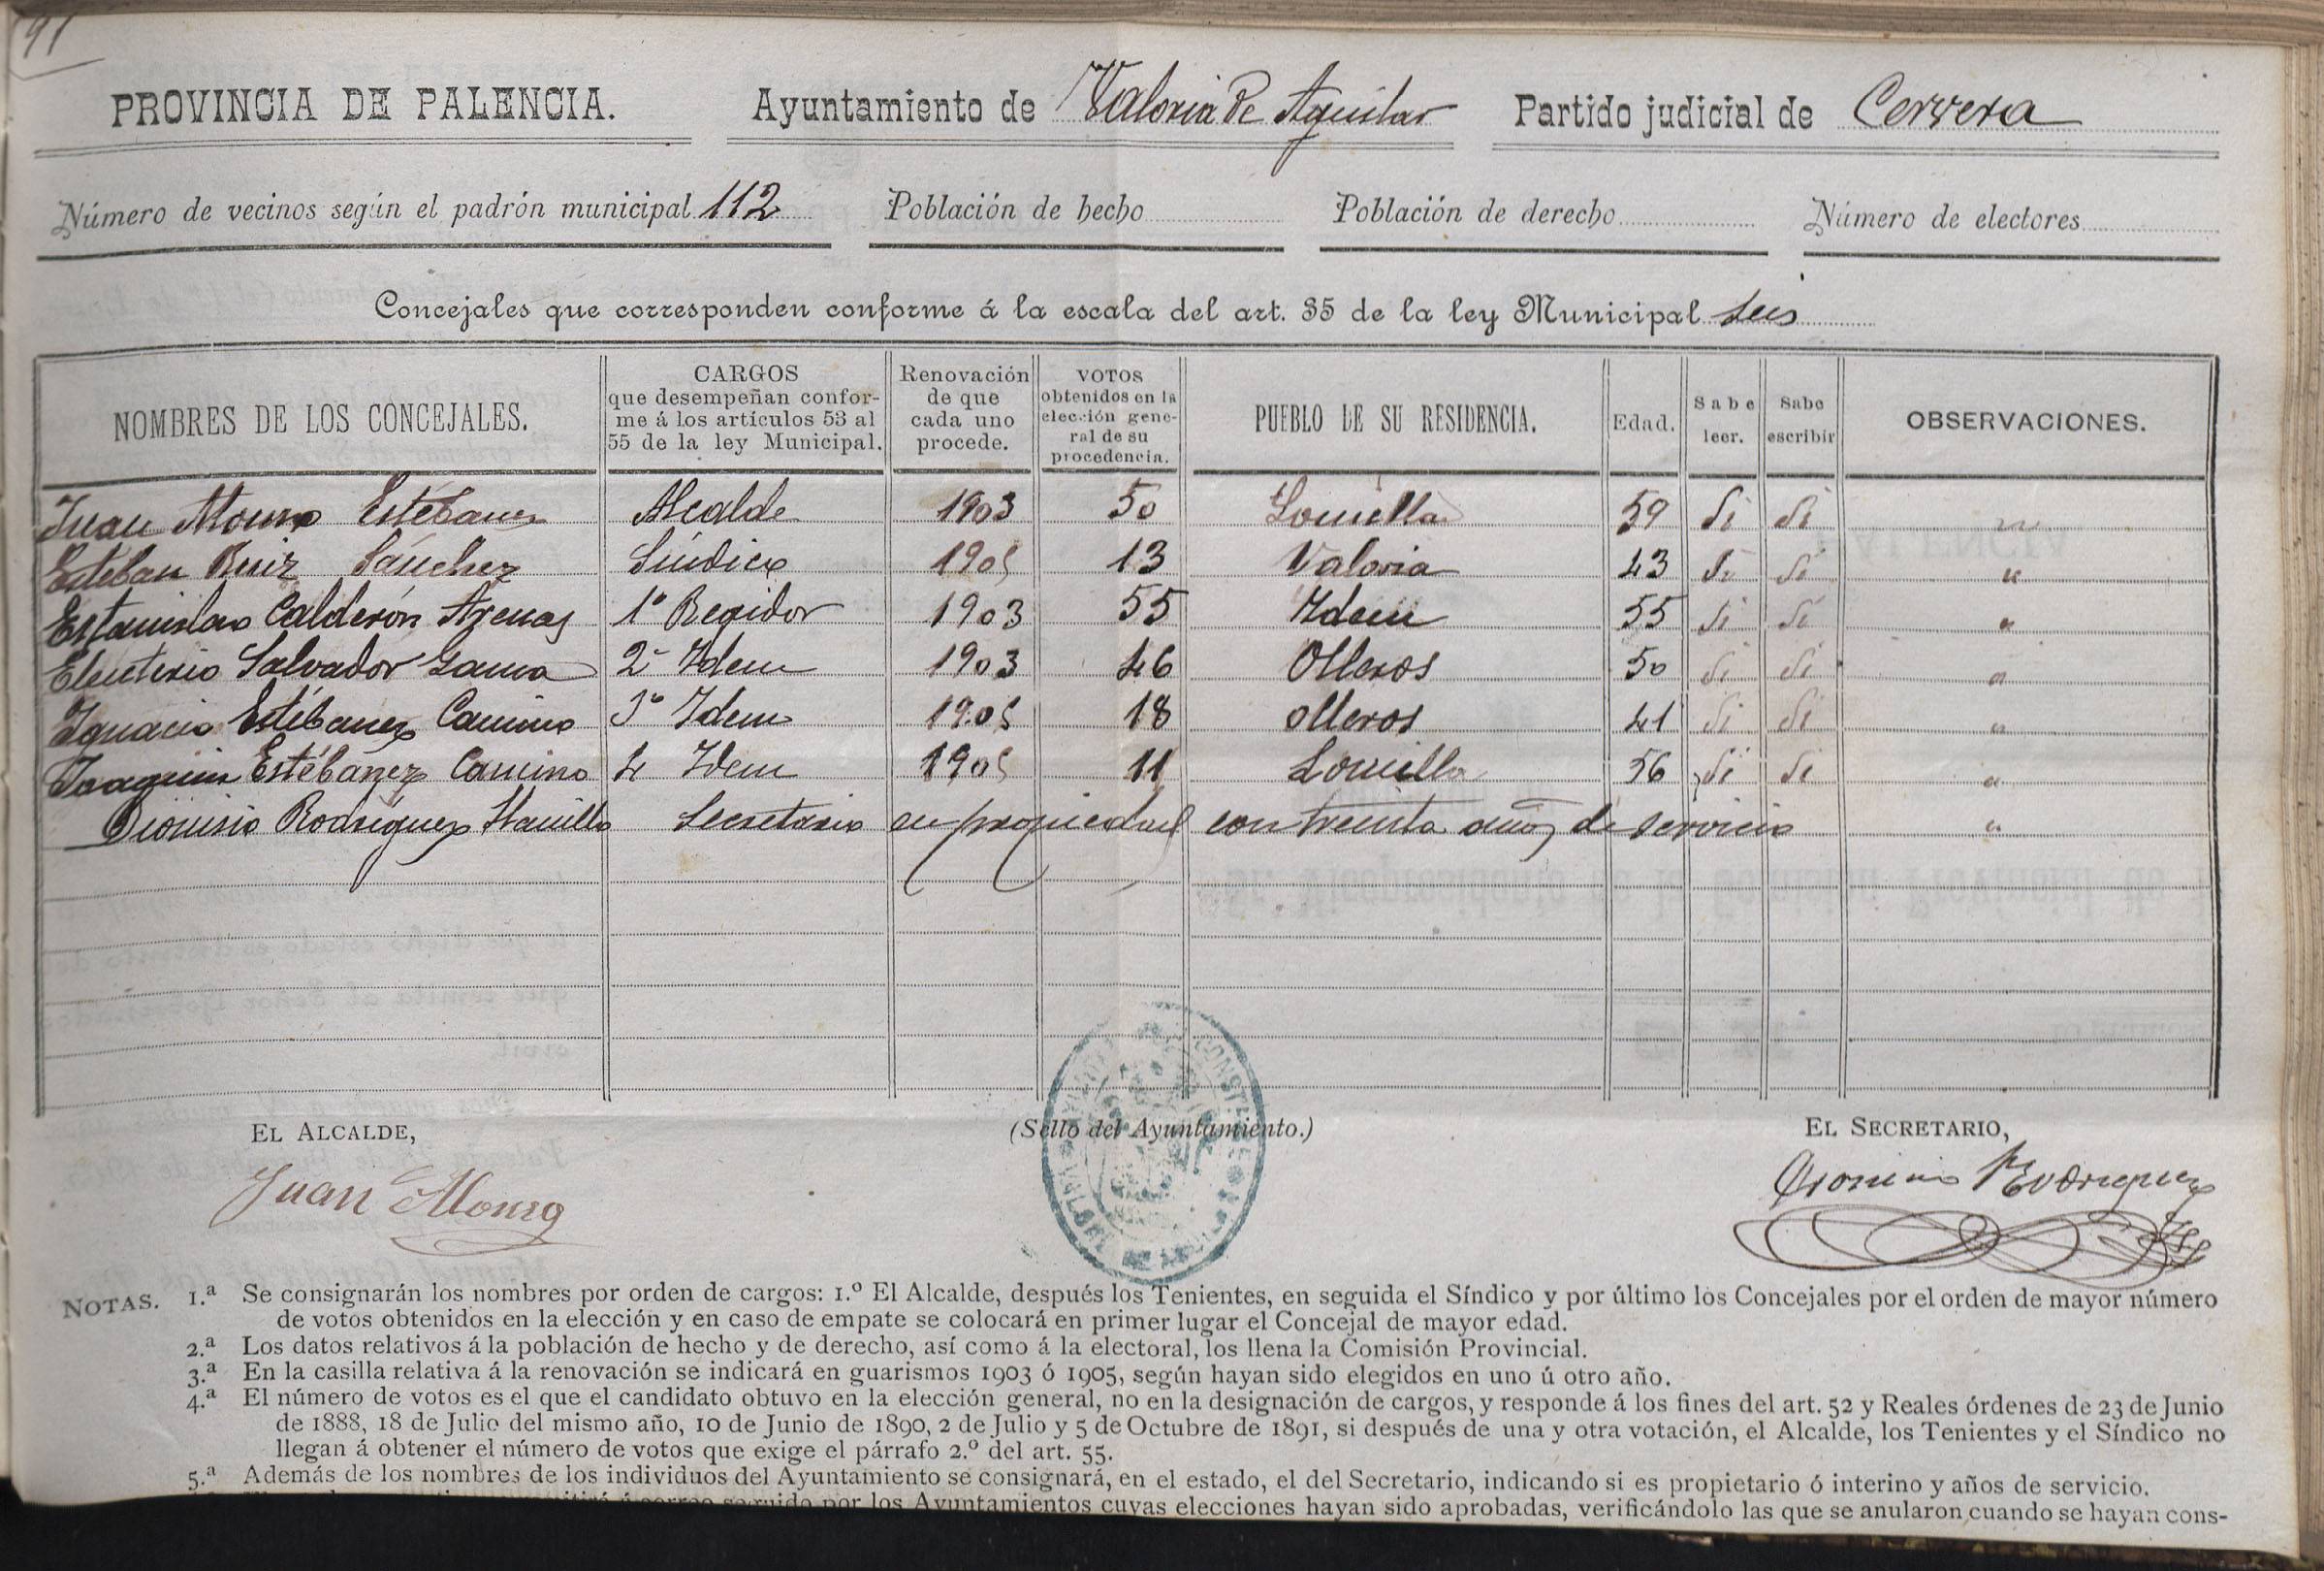 91
PROVINCIA DE PALENCIA. Ayuntamiento de Valoria de Aguilar Partido judicial de Cervera
Número de vecinos según el padrón municipal 112 Población de hecho Población de derecho Número de electores
Concejales que corresponden conforme á la escala del art. 35 de la ley Municipal seis
NOMBRES DE LOS CONCEJALES. CARGOS que desempeñan conforme á los artículos 53 al 55 de la ley Municipal. Renovación de que cada uno procede. VOTOS obtenidos en la elección general de su procedencia. PUEBLO DE SU RESIDENCIA. Edad. Sabe leer. Sabe escribir OBSERVACIONES.
Juan Alonso Estébanez Alcalde 1903 50 Lomilla 59 Si Si "
Esteban Ruiz Sánchez Síndico 1905 13 Valoria 43 Si Si "
Estanislao Calderón Arenas 1º Regidor 1903 55 Idem 55 Si Si "
Eleuterio Salvador Gama 2º Idem 1903 46 Olleros 50 Si Si "
Ignacio Estébanez Camino 3º Idem 1905 18 Olleros 41 Si Si "
Joaquin Estébanez Camino 4 Idem 1905 11 Lomilla 56 Si Si "
Dionisio Rodríguez Secretario en propiedad con treinta años de servicio "
EL ALCALDE, (Sello del Ayuntamiento.) EL SECRETARIO,
Juan Alonso Dionisio Rodriguez
NOTAS. 1.ª Se consignarán los nombres por orden de cargos: 1.º El Alcalde, después los Tenientes, en seguida el Síndico y por último los Concejales por el orden de mayor número
de votos obtenidos en la elección y en caso de empate se colocará en primer lugar el Concejal de mayor edad.
2.ª Los datos relativos á la población de hecho y de derecho, así como á la electoral, los llena la Comisión Provincial.
3.ª En la casilla relativa á la renovación se indicará en guarismos 1903 ó 1905, según hayan sido elegidos en uno ú otro año.
4.ª El número de votos es el que el candidato obtuvo en la elección general, no en la designación de cargos, y responde á los fines del art. 52 y Reales órdenes de 23 de Junio
de 1888, 18 de Julio del mismo año, 10 de Junio de 1890, 2 de Julio y 5 de Octubre de 1891, si después de una y otra votación, el Alcalde, los Tenientes y el Síndico no
llegan á obtener el número de votos que exige el párrafo 2.º del art. 55.
5.ª Además de los nombres de los individuos del Ayuntamiento se consignará, en el estado, el del Secretario, indicando si es propietario ó interino y años de servicio.
seguido por los Ayuntamientos cuyas elecciones hayan sido aprobadas, verificándolo las que se anularon cuando se hayan cons-